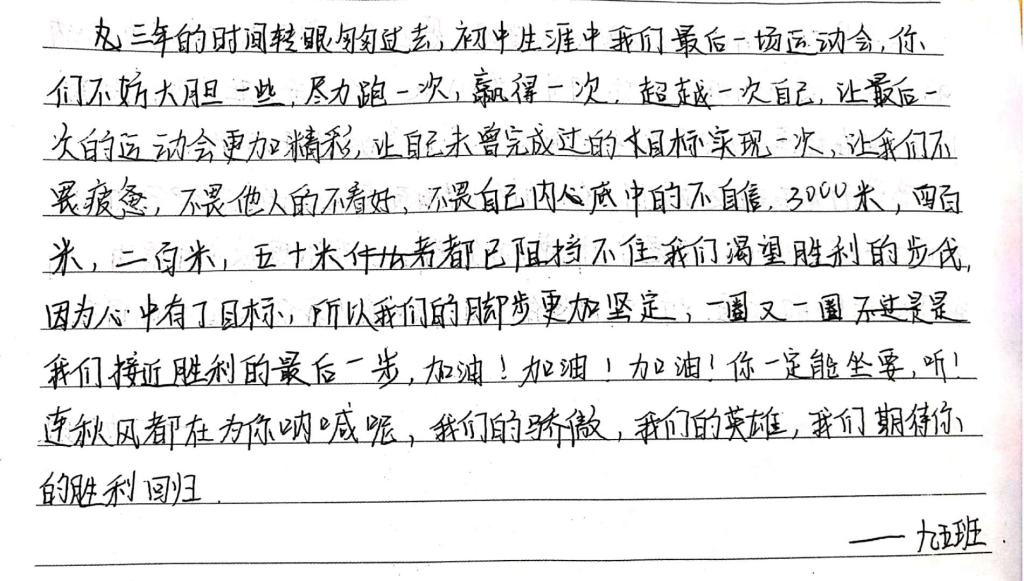 三年的时间转眼匆匆过去，初中生涯中我们最后一场运动会，你
们不妨大胆一些，尽力跑一次，赢得一次，超越一次自己，让最后一
次的运动会更加精彩，让自己未曾完成过的目标实现一次，让我们不
畏疲惫，不畏他人的不看好，不畏自己内心底中的不自信，3000米，四百
米，二百米，五十米什么者都已阻挡不住我们渴望胜利的步伐，
因为心中有了目标，所以我们的脚步更加坚定，一圈又一圈不过是是
我们接近胜利的最后一步，加油！加油！加油！你一定能坐要，听！
连秋风都在为你呐喊呢，我们的骄傲，我们的英雄，我们期待你
的胜利回归．
——九五班